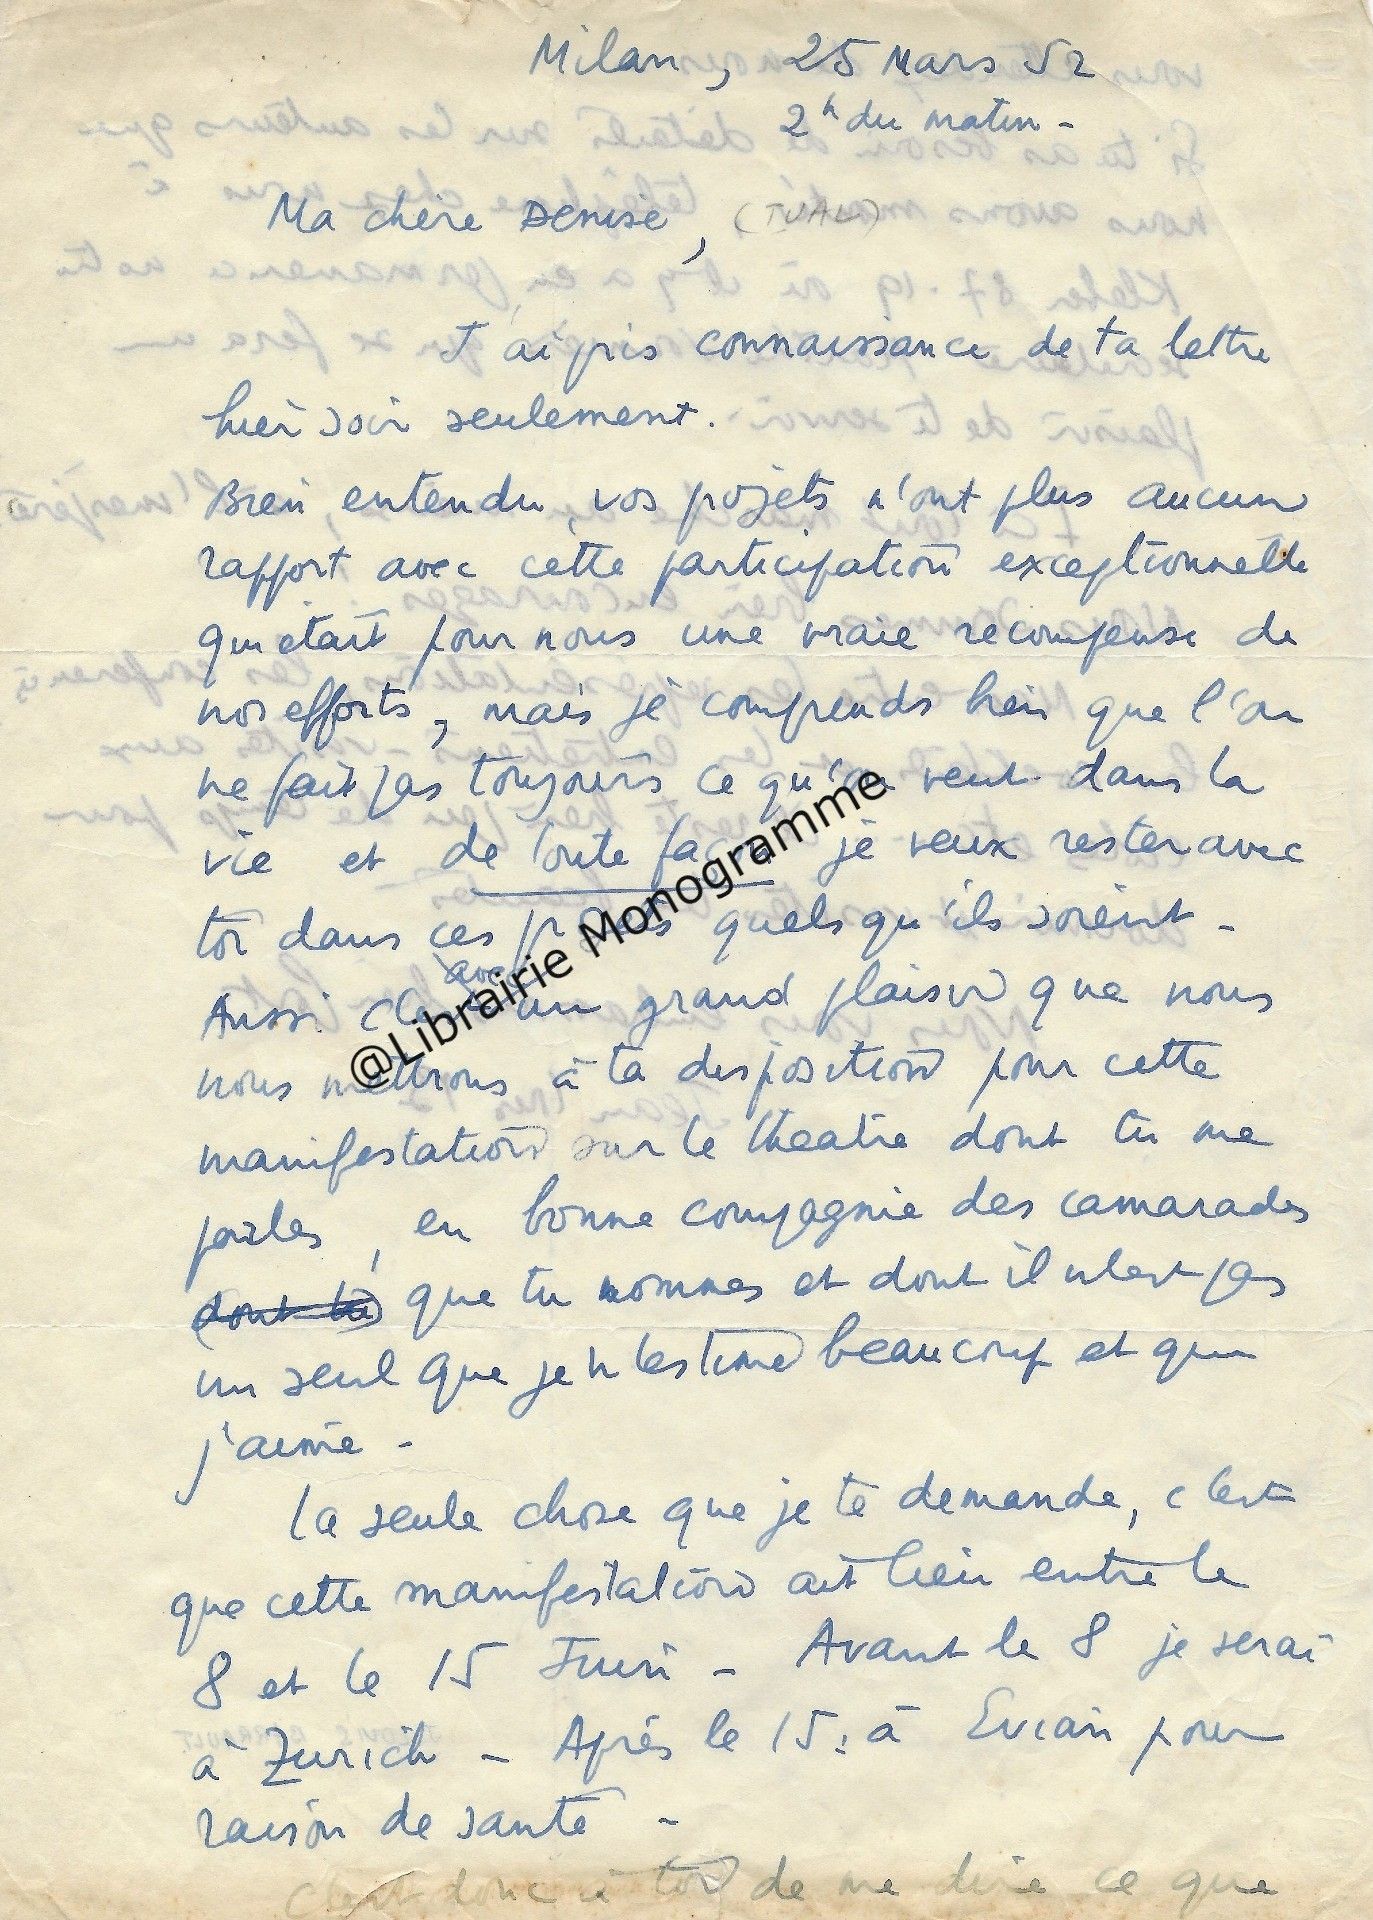 Milan, 25 Mars 52
2h du matin -
Ma chère Denise, (TUAL)
J'ai pris connaissance de ta lettre
hier soir seulement.
Bien entendu, vos projets n'ont plus aucun
rapport avec cette participation exceptionnelle
qui était pour nous une vraie recompense de
nos efforts, mais je comprends bien que l'on
ne fait pas toujours ce qu'on veut dans la
vie et de toute façon je veux rester avec
toi dans ces projets quels qu'ils soient -
avec
Aussi c'est un grand plaisir que nous
nous mettrons à ta disposition pour cette
manifestation sur le théatre dont tu me
parles, en bonne compagnie des camarades
(dont tu) que tu nommes et dont il n'est pas
un seul que je n'estime beaucoup et que
j'aime -
La seule chose que je te demande, c'est
que cette manifestation ait lieu entre le
8 et le 15 Juin - Avant le 8 je serai
à Zurich - Après le 15 : à Evian pour
raison de santé -
C'est donc à toi de me dire ce que
@Librairie Monogramme